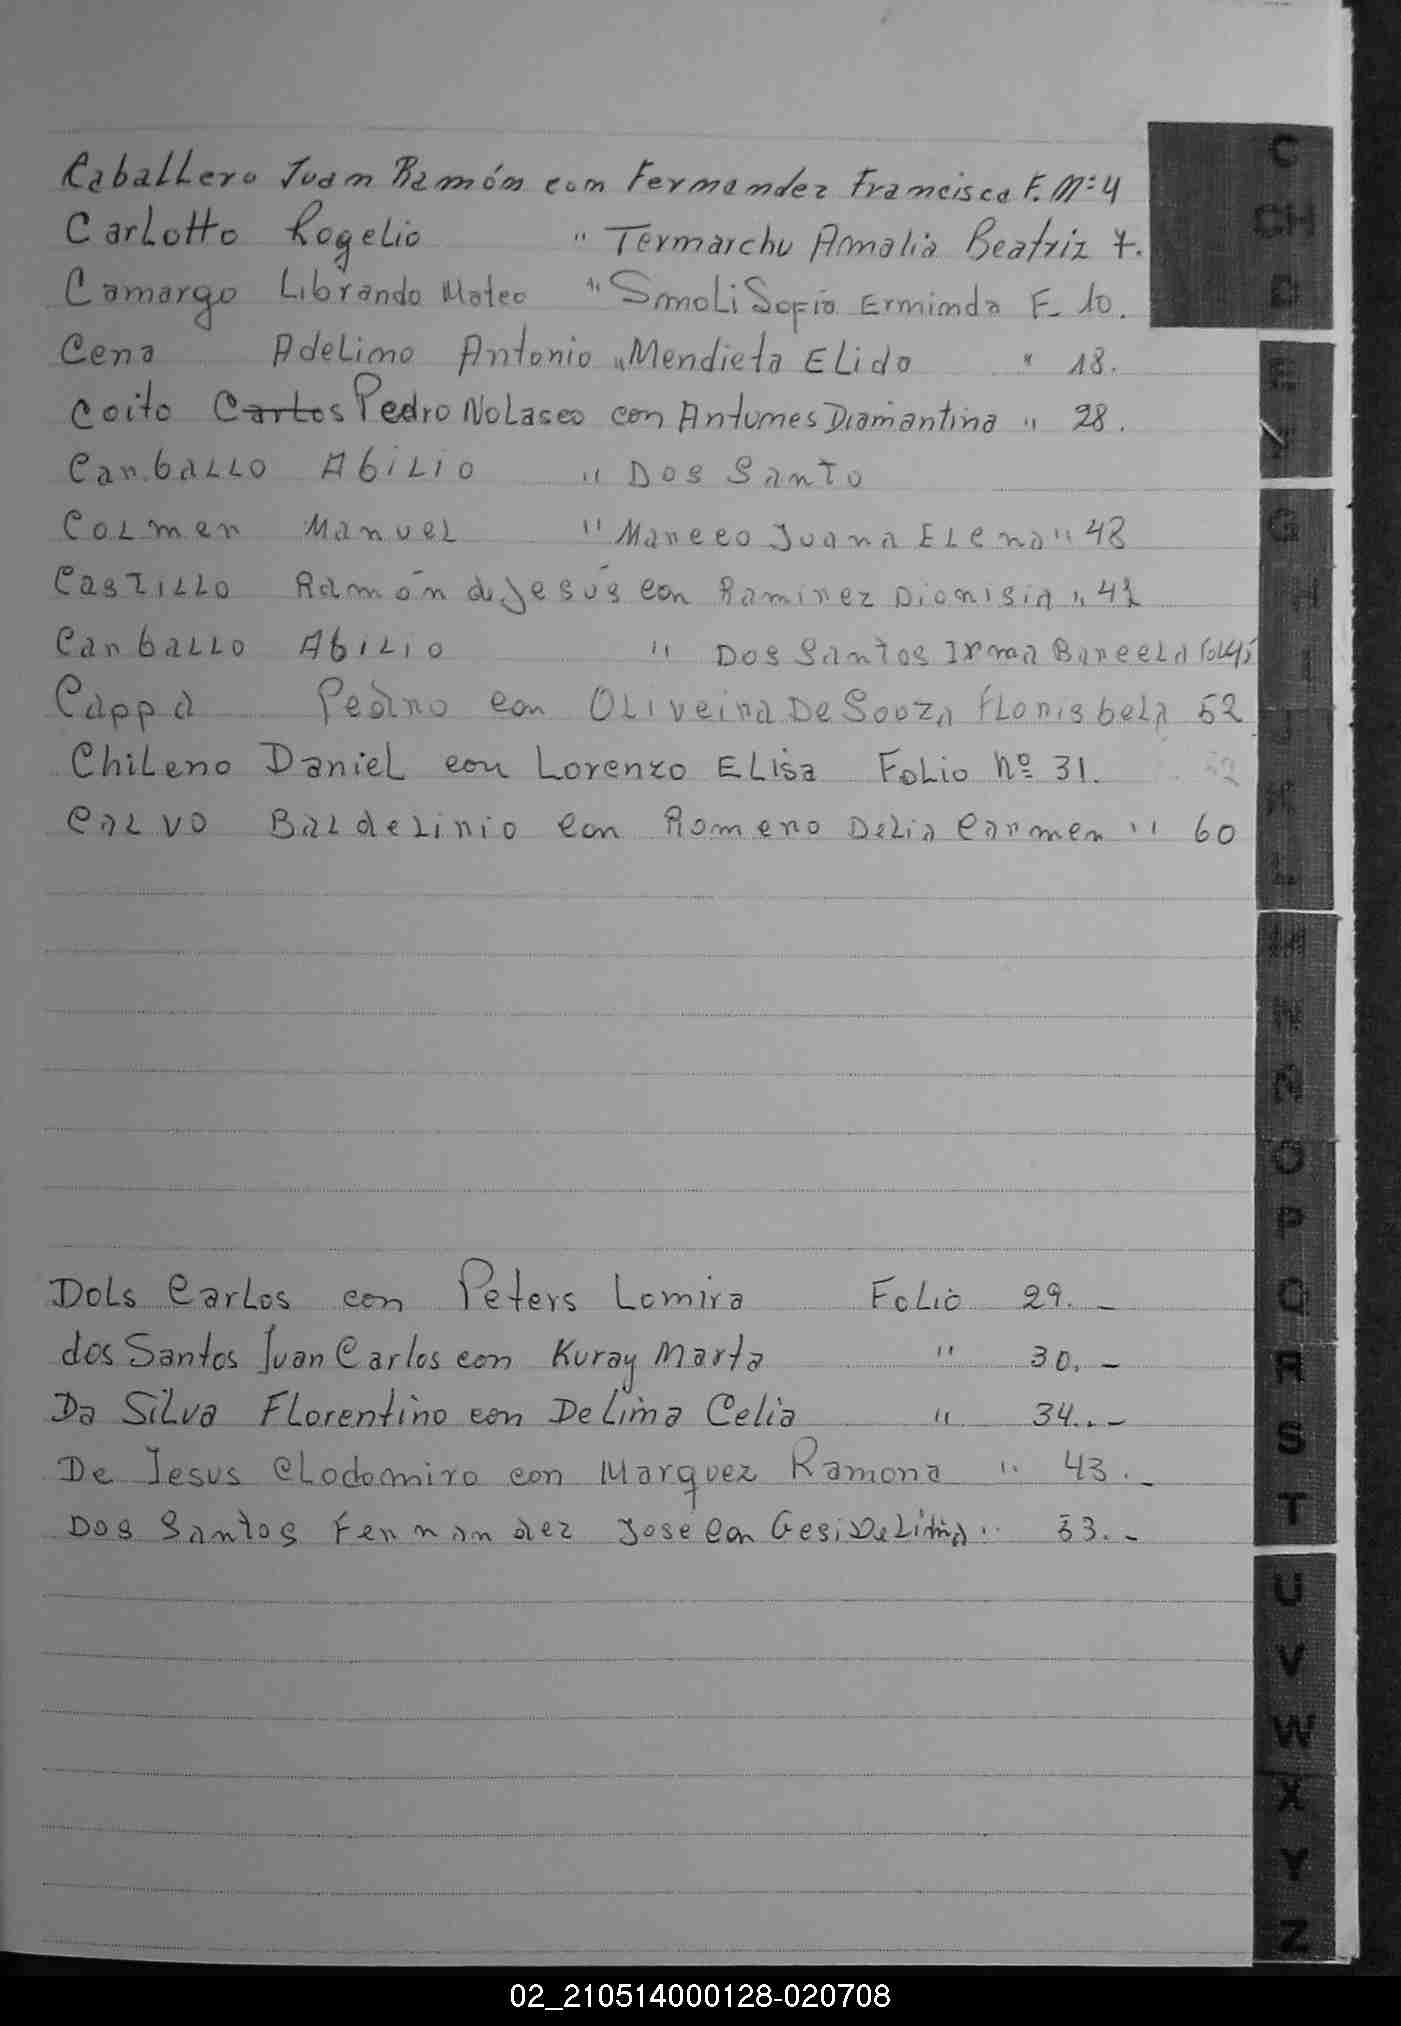 Caballero Juan Ramón con Fernandez Francisca F. Nº 4
Carlotto Rogelio " Termarchu Amalia Beatriz 7.
Camargo Librando Mateo " Smoli Sofia Erminda F- 10.
Cena Adelimo Antonio " Mendieta Elida " 18.
Coito Carlos Pedro Nolasco con Antumes Diamantina " 28.
Carballo Abilio " Dos Santo
Colmen Manuel " Mareco Juana Elena " 48
Castillo Ramón de Jesús con Ramirez Dionisia " 41
Carballo Abilio " Dos Santos Irma
Cappa Pedro con Oliveira De Souza Florisbela 52
Chileno Daniel con Lorenzo Elisa Folio Nº 31.
Calvo Baldelinio con Romero Delia Carmen " 60
Dols Carlos con Peters Lomira Folio 29. -
dos Santos Juan Carlos con Kuray Marta " 30. -
Da Silva Florentino con De Lima Celia " 34.. -
De Jesus Clodomiro con Marquez Ramona " 43. -
Dos Santos Fernandez Jose con Gesi De Lima " 53. -
C
CH
D
E
F
G
H
I
J
K
L
M
N
Ñ
O
P
Q
R
S
T
U
V
W
X
Y
Z
02_210514000128-020708